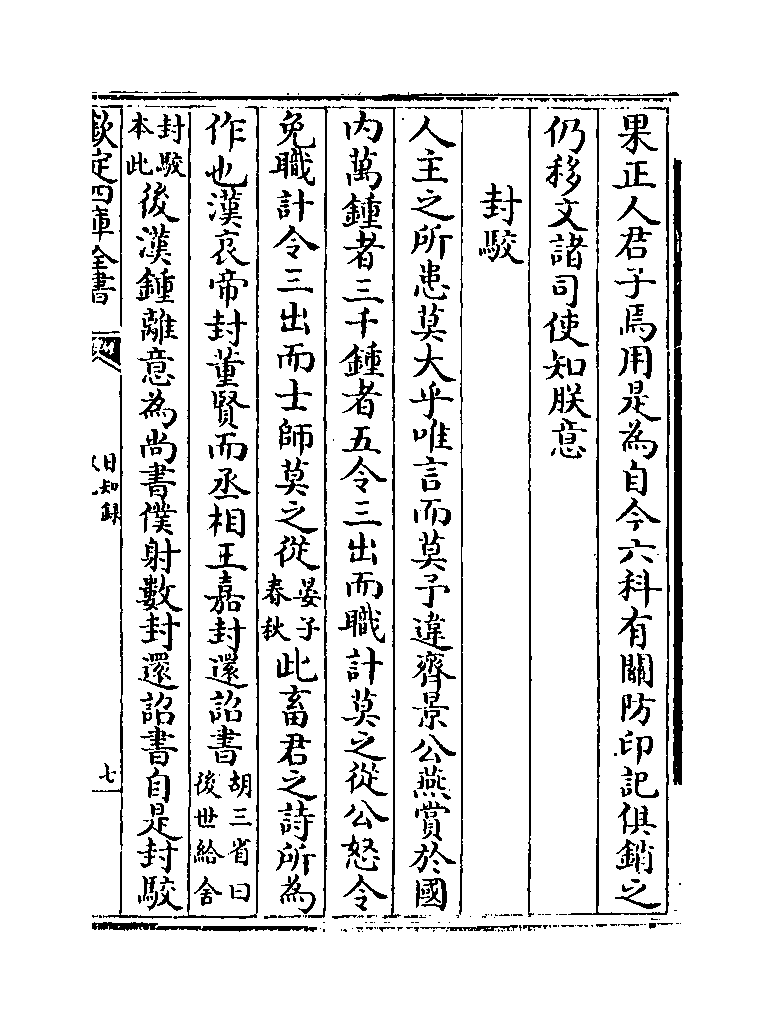 果正人君子焉用是為自今六科有關防印記俱銷之
仍移文諸司使知朕意
封駮
人主之所患莫大乎唯言而莫予違齊景公燕賞於國
内萬鍾者三千鍾者五令三出而職計莫之從公怒令
免職計令三出而士師莫之從晏子春秋此畜君之詩所為
作也漢哀帝封董賢而丞相王嘉封還詔書胡三省曰後世給舍
封駮本此後漢鍾離意為尚書僕射數封還詔書自是封駮
欽定四庫全書
日知録
七